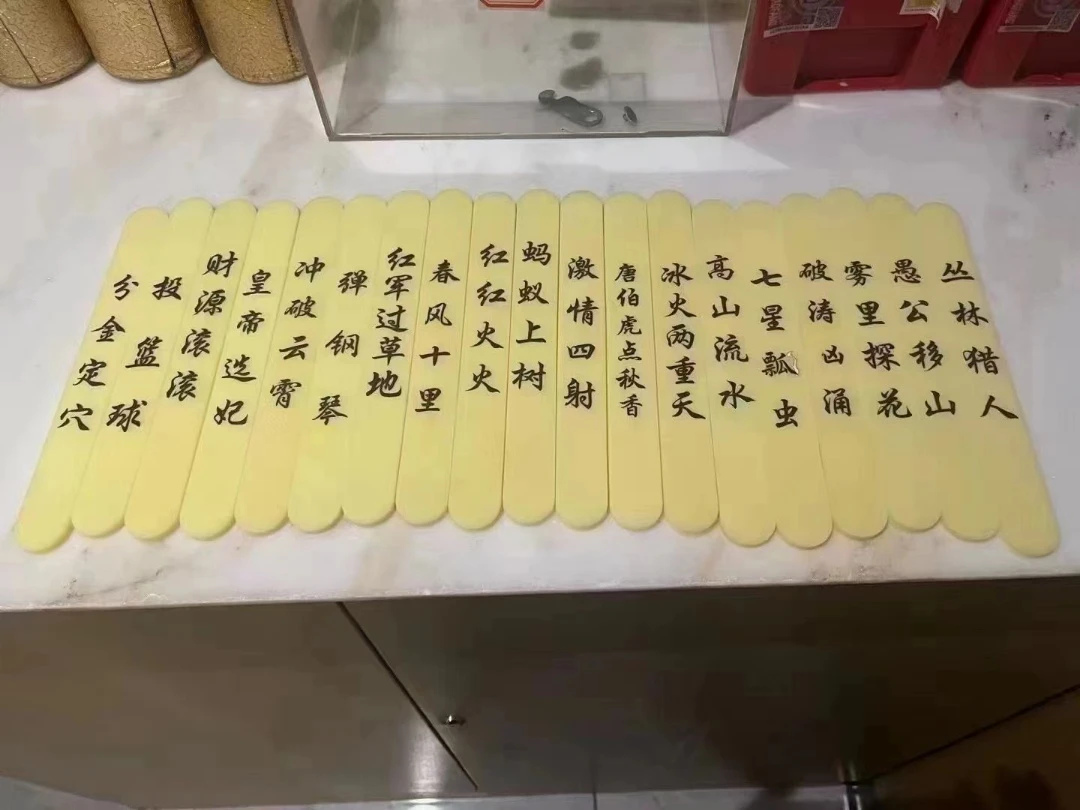 分金定穴
投篮球
财源滚滚
皇帝选妃
冲破云霄
弹钢琴
红军过草地
春风十里
红红火火
蚂蚁上树
激情四射
唐伯虎点秋香
冰火两重天
高山流水
七星瓢虫
破涛凶涌
雾里探花
愚公移山
丛林猎人